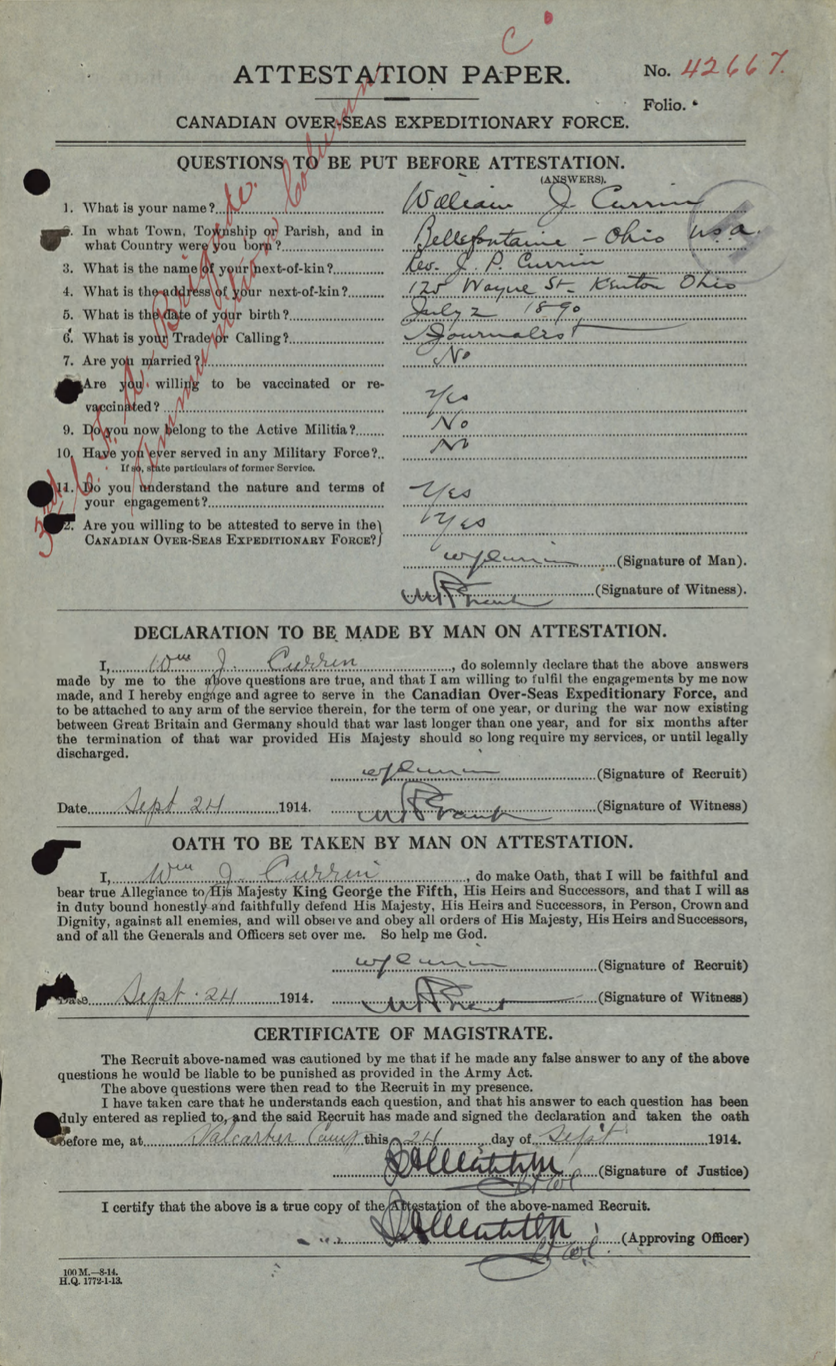 C
ATTESTATION PAPER.
No. 42667.
Folio.
CANADIAN OVER-SEAS EXPEDITIONARY FORCE.
QUESTIONS TO BE PUT BEFORE ATTESTATION.
(ANSWERS).
1. What is your name? William J. Currin
2. In what Town, Township or Parish, and in
what Country were you born? Bellefontaine - Ohio U.S.A.
3. What is the name of your next-of-kin? Rev. J. P. Currin
4. What is the address of your next-of-kin? 125 Wayne St. Kenton Ohio
5. What is the date of your birth? July 2 1890
6. What is your Trade or Calling? Journalist
7. Are you married? No
8. Are you willing to be vaccinated or re-
vaccinated? Yes
9. Do you now belong to the Active Militia? No
10. Have you ever served in any Military Force? No
If so, state particulars of former Service.
11. Do you understand the nature and terms of
your engagement? Yes
12. Are you willing to be attested to serve in the
CANADIAN OVER-SEAS EXPEDITIONARY FORCE? Yes
3rd C. F. A. Brigade.
Ammunition Column
WJCurrin (Signature of Man).
(Signature of Witness).
DECLARATION TO BE MADE BY MAN ON ATTESTATION.
I, Wm J. Currin, do solemnly declare that the above answers
made by me to the above questions are true, and that I am willing to fulfil the engagements by me now
made, and I hereby engage and agree to serve in the Canadian Over-Seas Expeditionary Force, and
to be attached to any arm of the service therein, for the term of one year, or during the war now existing
between Great Britain and Germany should that war last longer than one year, and for six months after
the termination of that war provided His Majesty should so long require my services, or until legally
discharged.
WJCurrin (Signature of Recruit)
Date Sept 24 1914. (Signature of Witness)
OATH TO BE TAKEN BY MAN ON ATTESTATION.
I, Wm J. Currin, do make Oath, that I will be faithful and
bear true Allegiance to His Majesty King George the Fifth, His Heirs and Successors, and that I will as
in duty bound honestly and faithfully defend His Majesty, His Heirs and Successors, in Person, Crown and
Dignity, against all enemies, and will observe and obey all orders of His Majesty, His Heirs and Successors,
and of all the Generals and Officers set over me. So help me God.
WJCurrin (Signature of Recruit)
Date Sept. 24 1914. (Signature of Witness)
CERTIFICATE OF MAGISTRATE.
The Recruit above-named was cautioned by me that if he made any false answer to any of the above
questions he would be liable to be punished as provided in the Army Act.
The above questions were then read to the Recruit in my presence.
I have taken care that he understands each question, and that his answer to each question has been
duly entered as replied to, and the said Recruit has made and signed the declaration and taken the oath
before me, at Valcartier Camp this 24 day of Sept 1914.
Lt Col (Signature of Justice)
I certify that the above is a true copy of the Attestation of the above-named Recruit.
Lt Col. (Approving Officer)
100 M.—8-14.
H.Q. 1772-1-13.